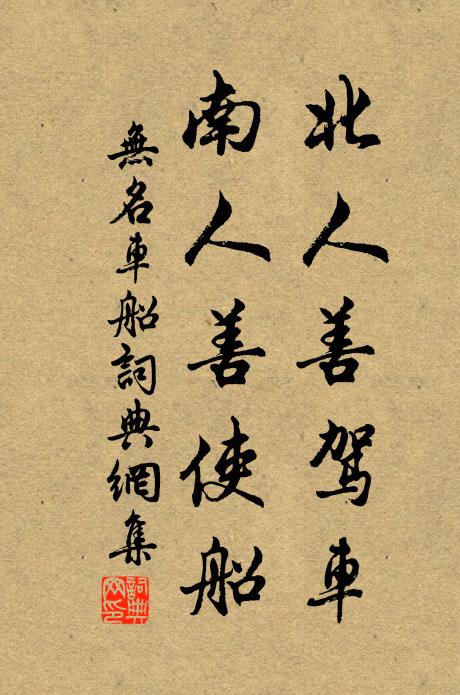 北人善駕車
南人善使船
無名車船詞典網集
詞典
网印